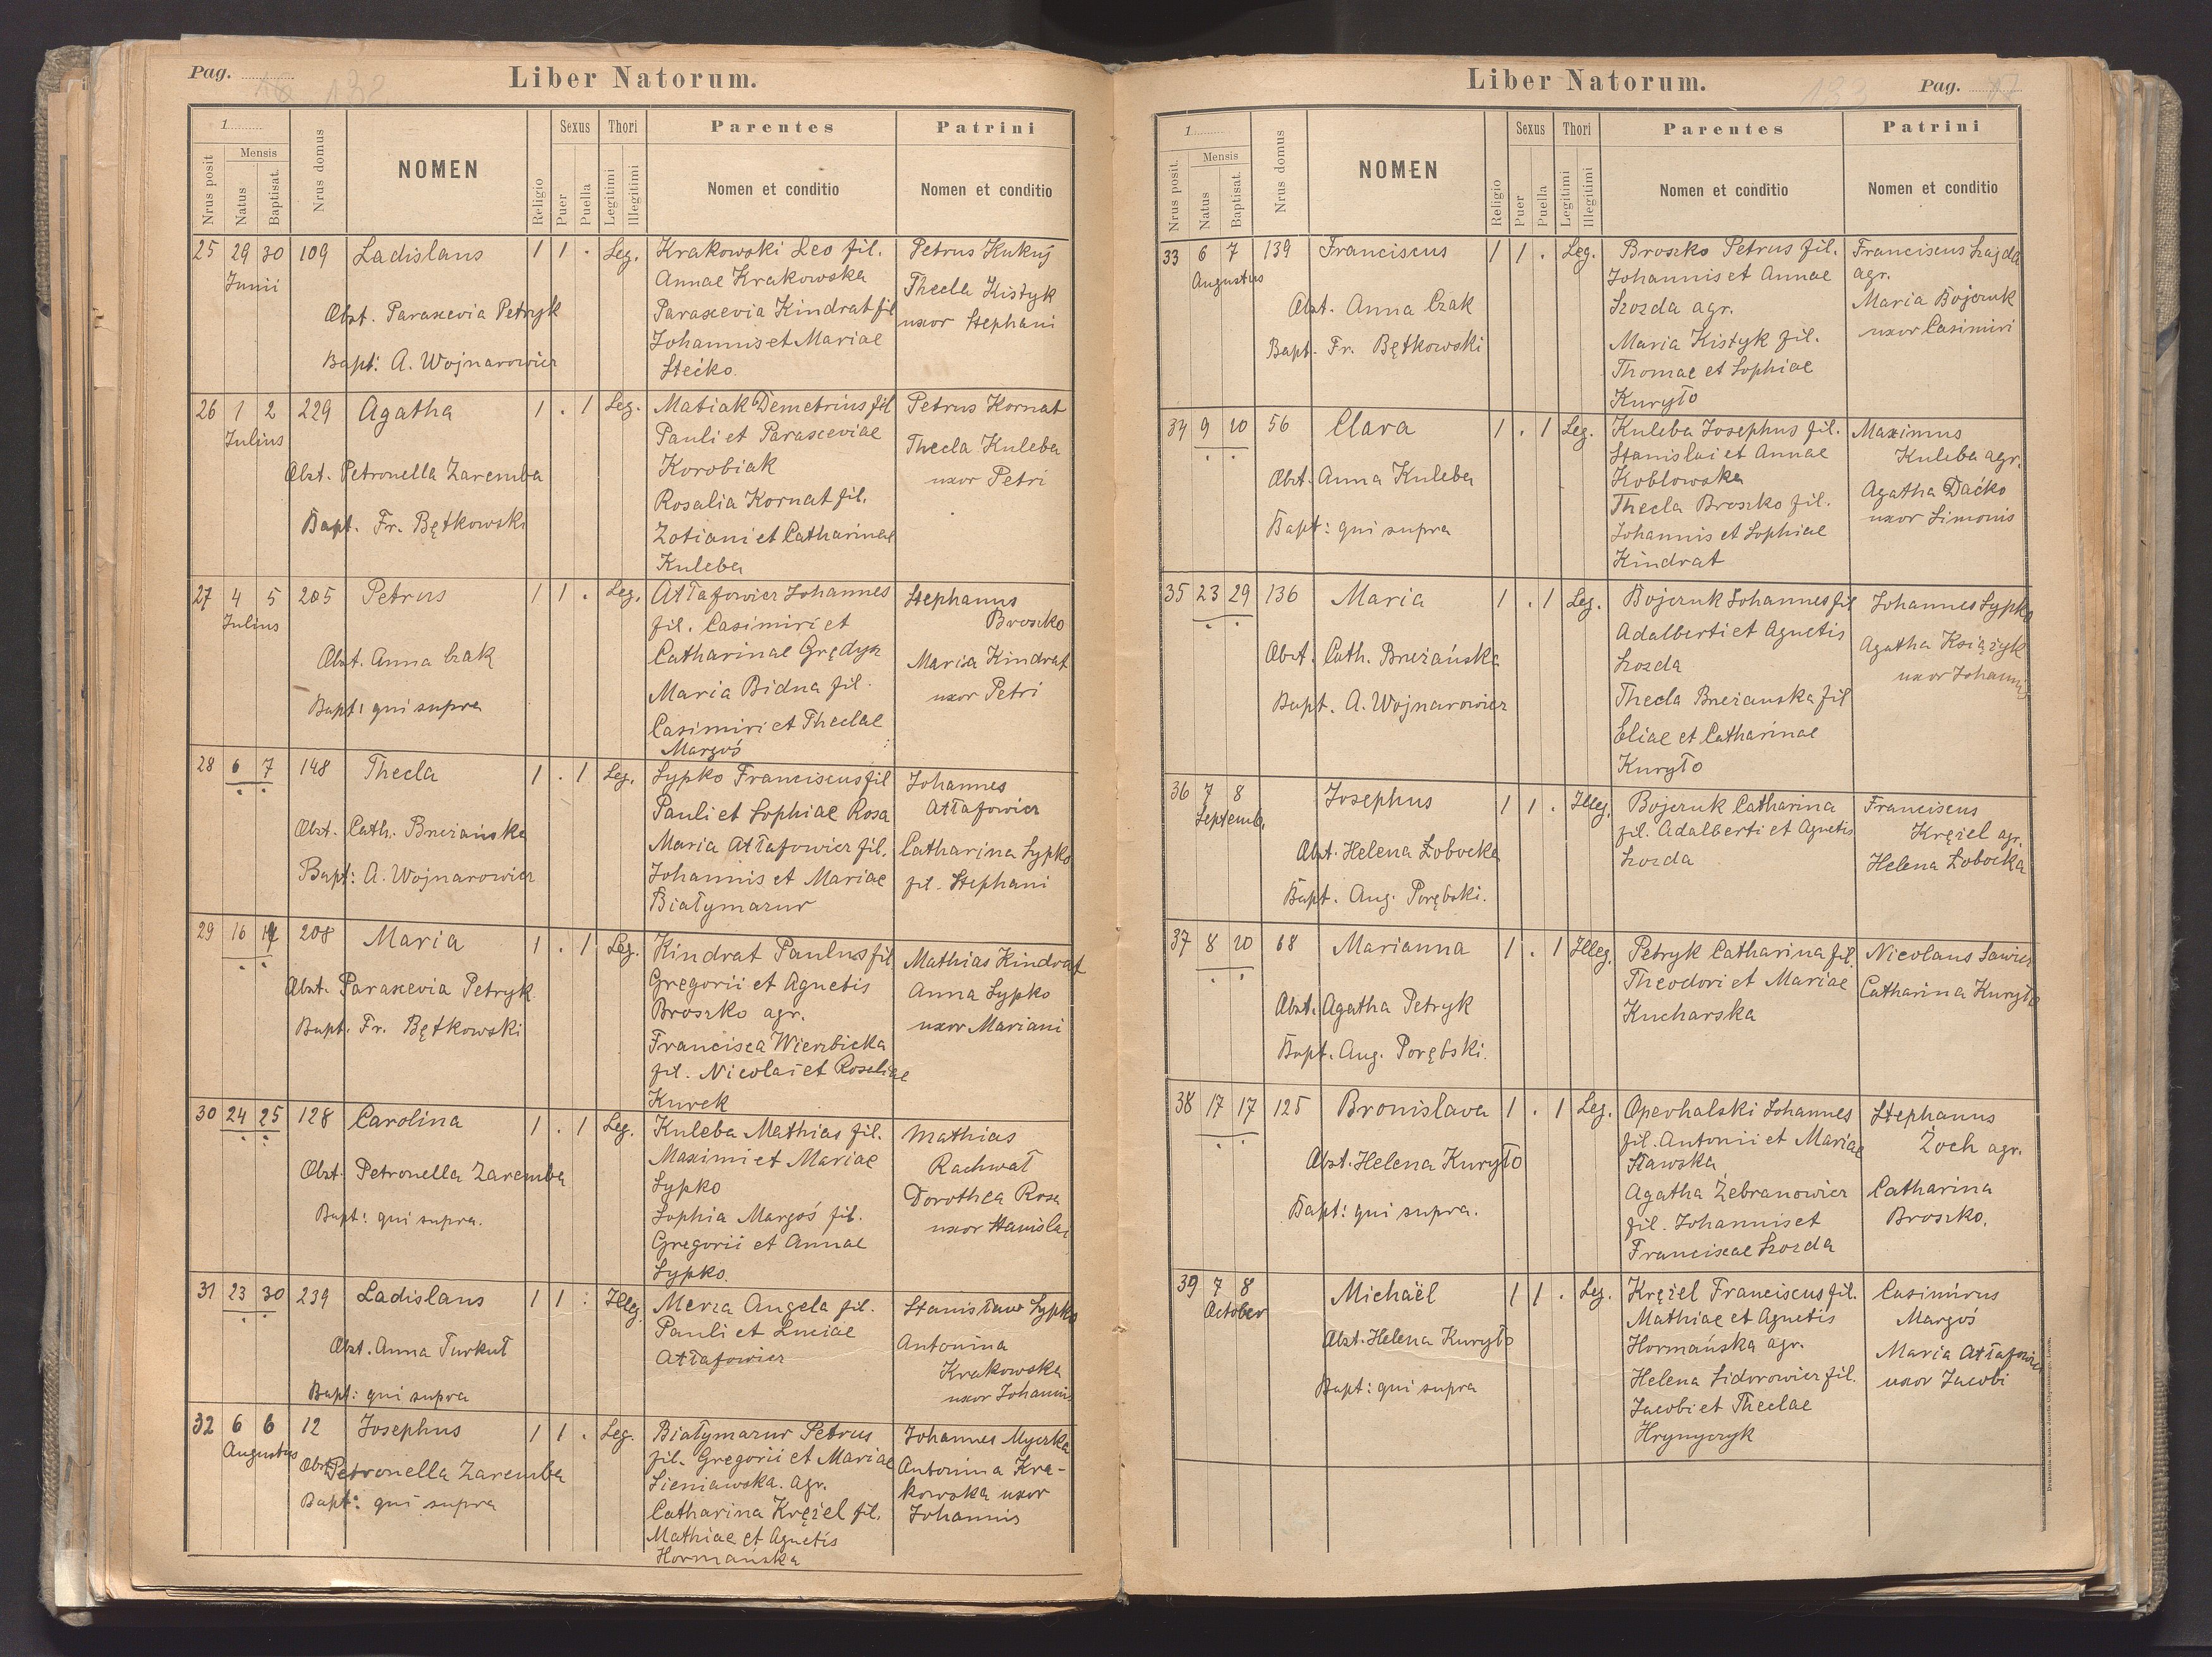 Pag. 16 132
Liber Natorum.
1
Nrus posit
Mensis
Natus
Baptisat.
Nrus domus
NOMEN
Religio
Sexus
Puer
Puella
Thori
Legitimi
Illegitimi
Parentes
Nomen et conditio
Patrini
Nomen et conditio
25 29 30 109 Ladislaus 1 1 . Leg. Krakowski Leo fil. Petrus Kukuj
Junii Annae Krakowska Thecla Kistyk
Obst. Parascevia Petryk Parascevia Kindrat fil uxor Stephani
Johannis et Mariae
Bapt: A. Wojnarowicz Stećko.
26 1 2 229 Agatha 1 . 1 Leg. Matiak Demetrius fil Petrus Kornat
Julius Pauli et Parasceviae Thecla Kuleba
Obst. Petronella Zaremba Korobiak uxor Petri
Rosalia Kornat fil.
Bapt. Fr. Bętkowski Zotiani et Catharinae
Kuleba
27 4 5 205 Petrus 1 1 . Leg. Attafowicz Johannes Stephanus
Julius fil. Casimiri et Broszko
Obst. Anna Czak Catharinae Grędys Maria Kindrat
Maria Bidna fil. uxor Petri
Bapt: qui supra Casimiri et Theclae
Margoś
28 6 7 148 Thecla 1 . 1 Leg. Sypko Franciscus fil Johannes
Pauli et Sophiae Rosa Attafowicz
Obst. Cath. Brzeżańska Maria Attafowicz fil. Catharina Sypko
Bapt: A. Wojnarowicz Johannis et Mariae fil. Stephani
Białymazur
29 16 17 208 Maria 1 . 1 Leg. Kindrat Paulus fil Mathias Kindrat
Obst. Parascevia Petryk Gregorii et Agnetis Anna Sypko
Bapt. Fr. Bętkowski Broszko agr. uxor Mariani
Francisca Wierzbicka
fil. Nicolai et Rosaliae
Kurek
30 24 25 128 Carolina 1 . 1 Leg. Kuleba Mathias fil. Mathias
Maximi et Mariae Rachwał
Obst. Petronella Zaremba Sypko Dorothea Rosa
Bapt: qui supra. Sophia Margoś fil. uxor Stanislai
Gregorii et Annae
Sypko.
31 23 30 239 Ladislaus 1 1 . Illeg. Merza Angela fil. Stanisław Sypko
Pauli et Luciae Antonina
Obst. Anna Turkuł Attafowicz Krakowska
Bapt: qui supra uxor Johannis
32 6 6 12 Josephus 1 1 . Leg. Białymazur Petrus Johannes Myczka
Augustus fil. Gregorii et Mariae Antonina Kra-
Obst. Petronella Zaremba Sieniawska. agr. kowska uxor
Bapt: qui supra Catharina Kręzel fil. Johannis
Mathiae et Agnetis
Hormańska
Liber Natorum.
133 Pag. 17
1
Nrus posit.
Mensis
Natus
Baptisat.
Nrus domus
NOMEN
Religio
Sexus
Puer
Puella
Thori
Legitimi
Illegitimi
Parentes
Nomen et conditio
Patrini
Nomen et conditio
33 6 7 139 Franciscus 1 1 . Leg. Broszko Petrus fil. Franciscus Szajda
Augustus Johannis et Annae agr.
Obst. Anna Czak Szozda agr. Maria Bojczuk
Bapt. Fr. Bętkowski Maria Kistyk fil. uxor Casimiri
Thomae et Sophiae
Kuryło
34 9 10 56 Clara 1 . 1 Leg. Kuleba Josephus fil. Maximus
Stanislai et Annae Kuleba agr.
Obst. Anna Kuleba Koblowska Agatha Daćko
Thecla Broszko fil. uxor Simonis
Bapt: qui supra Johannis et Sophiae
Kindrat
35 23 29 136 Maria 1 . 1 Leg. Bojczuk Johannes fil Johannes Sypko
Adalberti et Agnetis Agatha Książyk
Obst. Cath. Brzeżańska Szozda uxor Johannis
Bapt. A. Wojnarowicz Thecla Brzeżanska fil
Eliae et Catharinae
Kuryło
36 7 8 Josephus 1 1 . Illeg. Bojczuk Catharina Franciscus
Septemb. fil. Adalberti et Agnetis Kręzel agr.
Obst. Helena Łobocka Szozda Helena Łobocka
Bapt. Aug. Porębski.
37 8 10 68 Marianna 1 . 1 Illeg. Petryk Catharina fil. Nicolaus Sawicz
Theodori et Mariae Catharina Kuryło
Obst. Agatha Petryk Kucharska
Bapt. Aug. Porębski.
38 17 17 125 Bronislava 1 . 1 Leg. Operhalski Johannes Stephanus
fil. Antonii et Mariae Żoch agr.
Obst. Helena Kuryło Stawska Catharina
Agatha Żebranowicz Broszko.
Bapt: qui supra. fil. Johannis et
Franciscae Szozda
39 7 8 Michaël 1 1 . Leg. Kręzel Franciscus fil. Casimirus
October Mathiae et Agnetis Margoś
Obst. Helena Kuryło Hormańska agr. Maria Attafowicz
Bapt: qui supra Helena Sidorowicz fil. uxor Jacobi
Jacobi et Theclae
Hrynyczyk